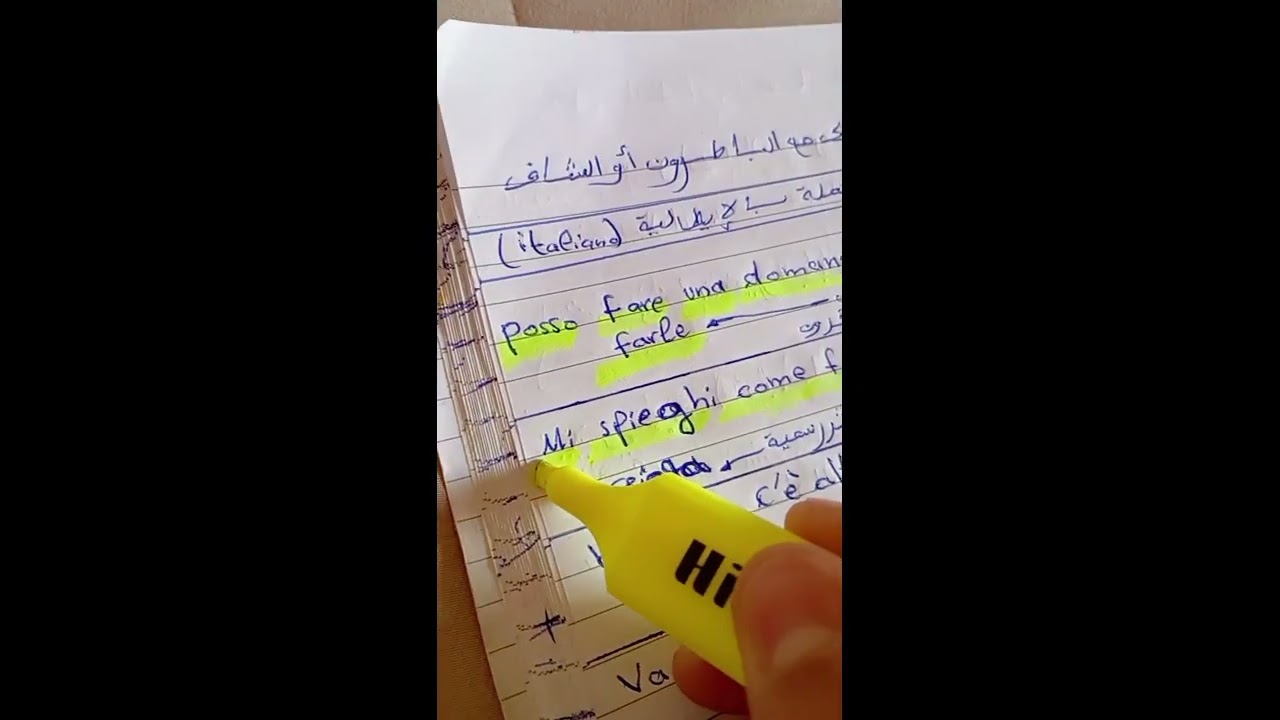 مع الباطرون أو الشاف
بالإيطالية (italiano)
posso fare una doman
farle
Mi spieghi come f
رسمية
c'è al
Hi
Va